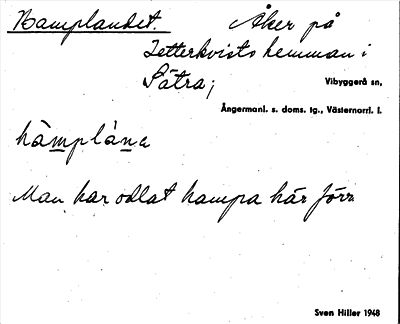 Hamplandet. Åker på
Zetterkvists hemman i
Sätra; Vibyggerå sn,
Ångermanl. s. doms. tg., Västernorrl. l.
hàmplàna
Man har odlat hampa här förr
Sven Hiller 1948